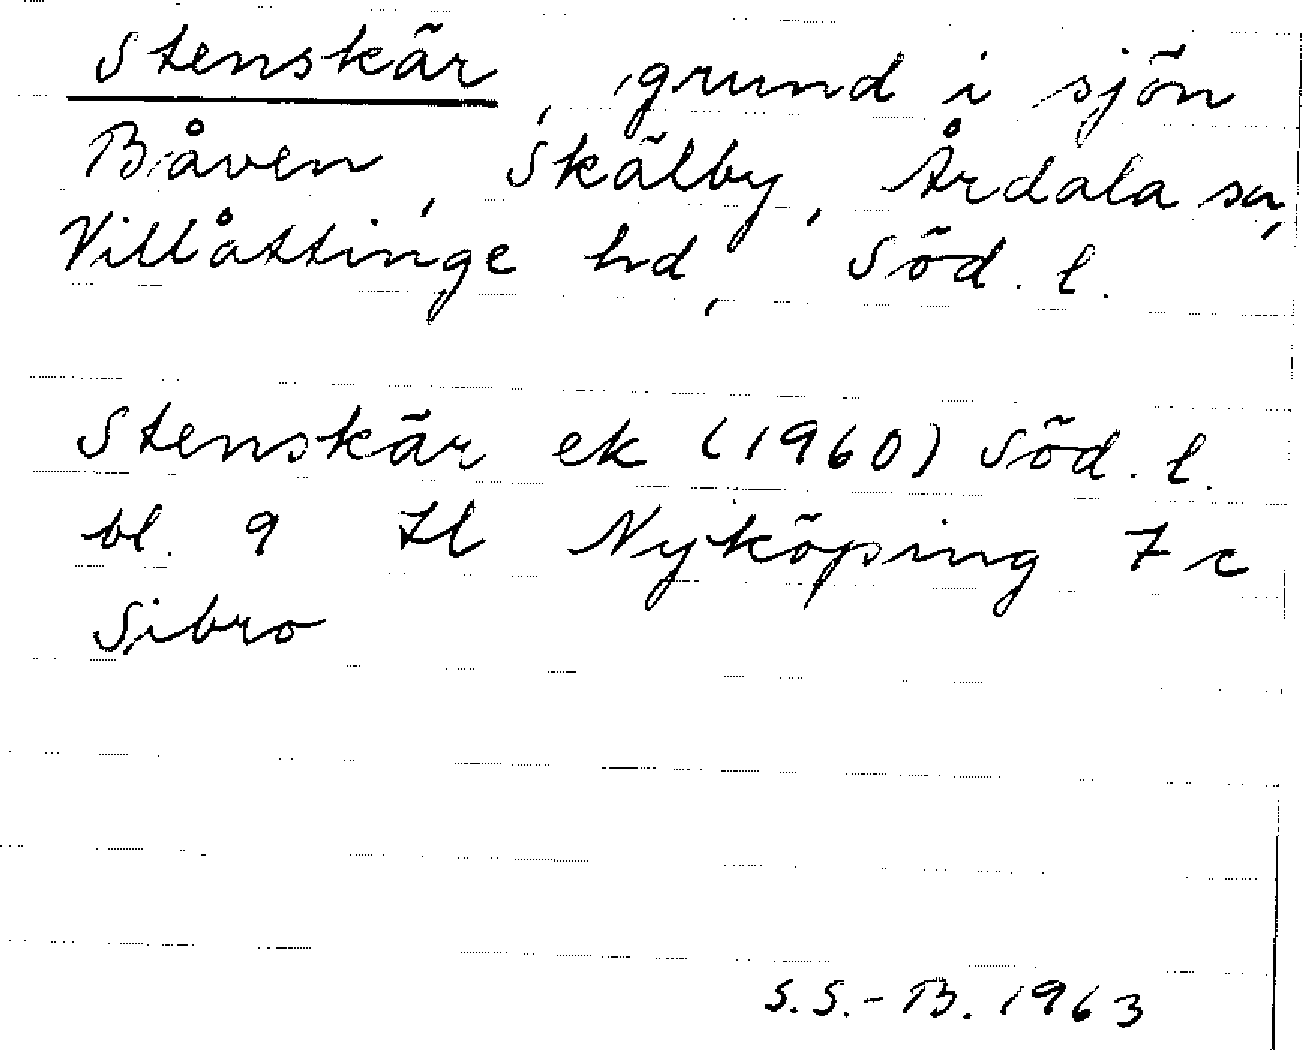 Stenskär, grund i sjön
Båven, Skälby, Årdala sn,
Villåttinge hd, Söd. l.
Stenskär ek (1960) Söd. l.
bl. 9 Il Nyköping 7 c
Sibro
S.S.-B. 1963